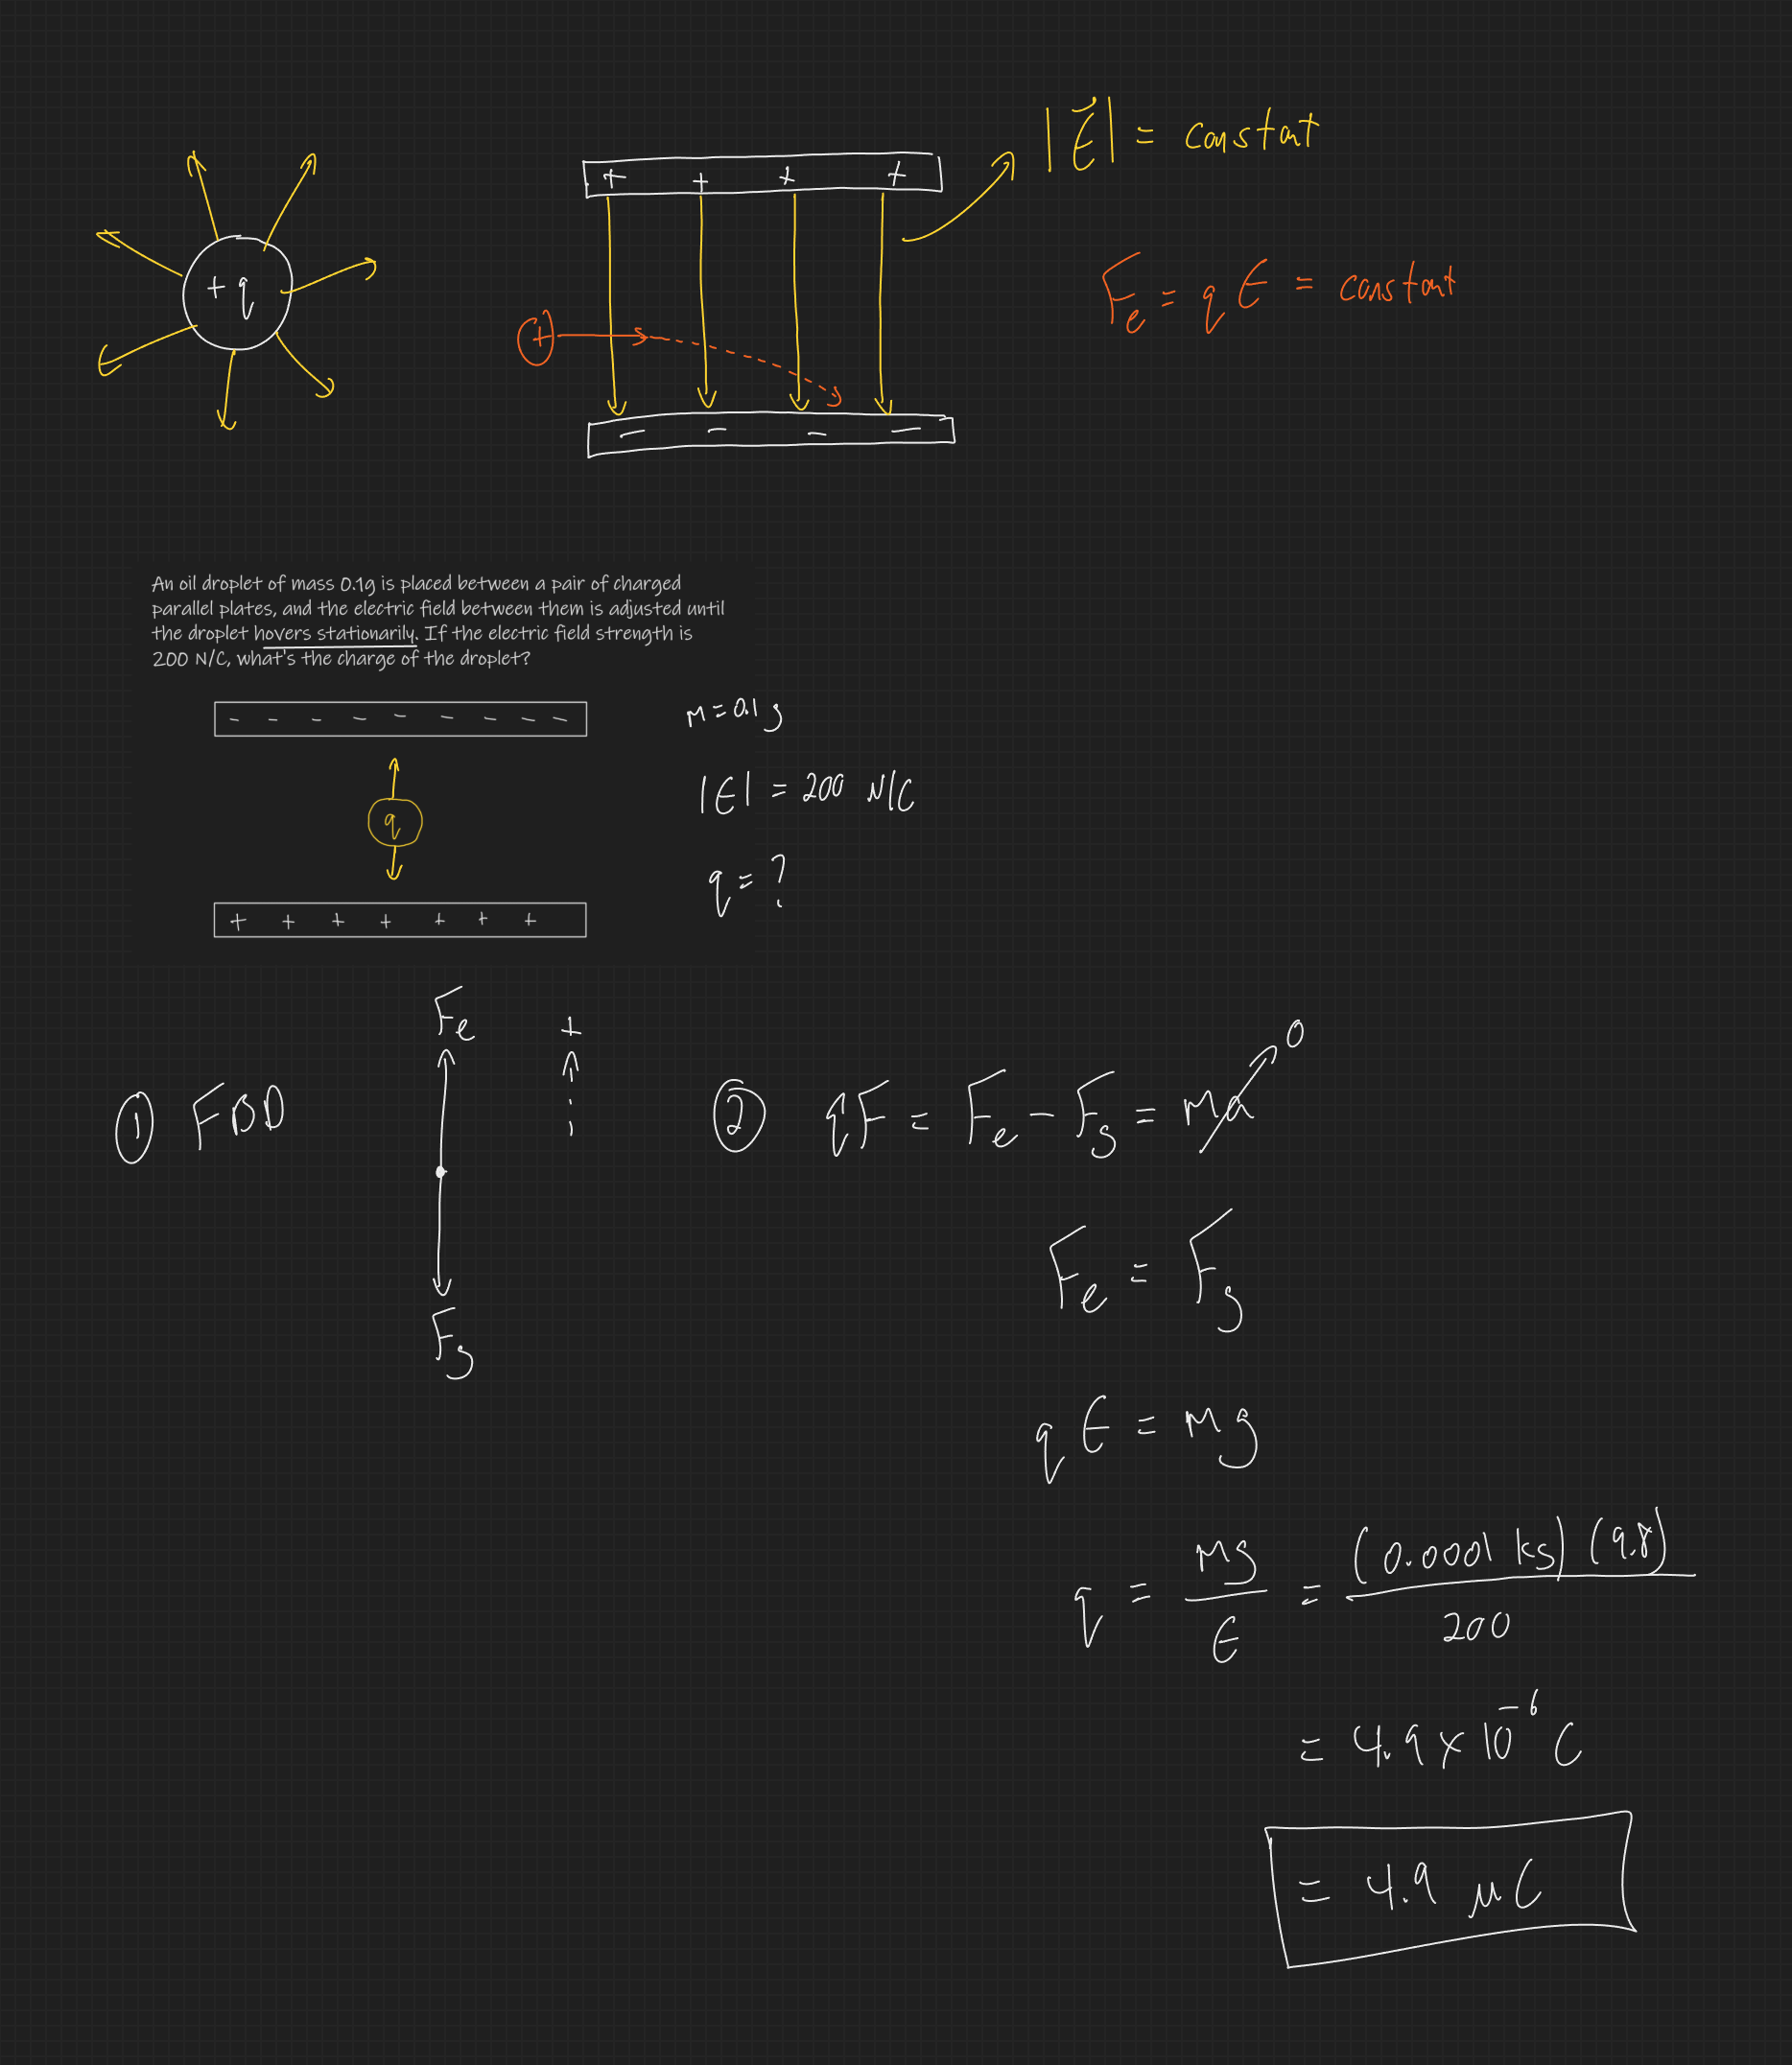 |E⃗| = constant
+ + + +
+q
Fe = q E = constant
+
− − − −
An oil droplet of mass 0.1g is placed between a pair of charged
parallel plates, and the electric field between them is adjusted until
the droplet hovers stationarily. If the electric field strength is
200 N/C, what's the charge of the droplet?
− − − − − − − − −
m = 0.1 g
|E| = 200 N/C
q
q = ?
+ + + + + + +
Fe +
① FBD
② qF = Fe − Fg = ma 0
Fg
Fe = Fg
q E = mg
q = mg/E = (0.0001 kg) (9.8)/200
= 4.9 × 10⁻⁶ C
= 4.9 μC